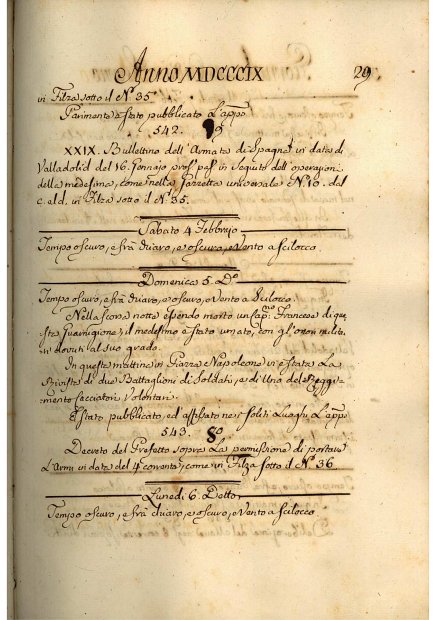 Anno MDCCCIX 29
in Filza sotto il N.° 35
Parimente è stato pubblicato l'app.o
542.
XXIX. Bullettino dell'Armata di Spagna in data di
Valladolid del 16. Gennajo pros.° pas.° in seguito dell'operazioni
della medesima, come nella Gazzetta universale N.° 10. del
c. eld. in Filza sotto il N.° 35.
Sabato 4 Febbrajo
Tempo oscuro, e frà duaro, e oscuro, e Vento a Scilocco
Domenica 5. D.°
Tempo oscuro, e frà duaro, e oscuro, e Vento a Scilocco.
Nella scorsa notte essendo morto un Cap.no Francese di que
sta Guarnigione, il medesimo è stato umato, con gl'onori milita
ri dovuti al suo grado.
In questa mattina in Piazza Napoleone vi è stata La
Rivista di due Battaglioni di Soldati, e di Uno del Reggi
mento Cacciatori Volontari.
È stato pubblicato, ed affissato nei soliti Luoghi L'app.o
543.
Decreto del Prefetto sopra La permissione di portare
L'Armi in data del 4 corrente, come in Filza sotto il N.° 36.
Lunedì 6. Detto
Tempo oscuro, e frà duaro, e oscuro, e Vento a Scilocco